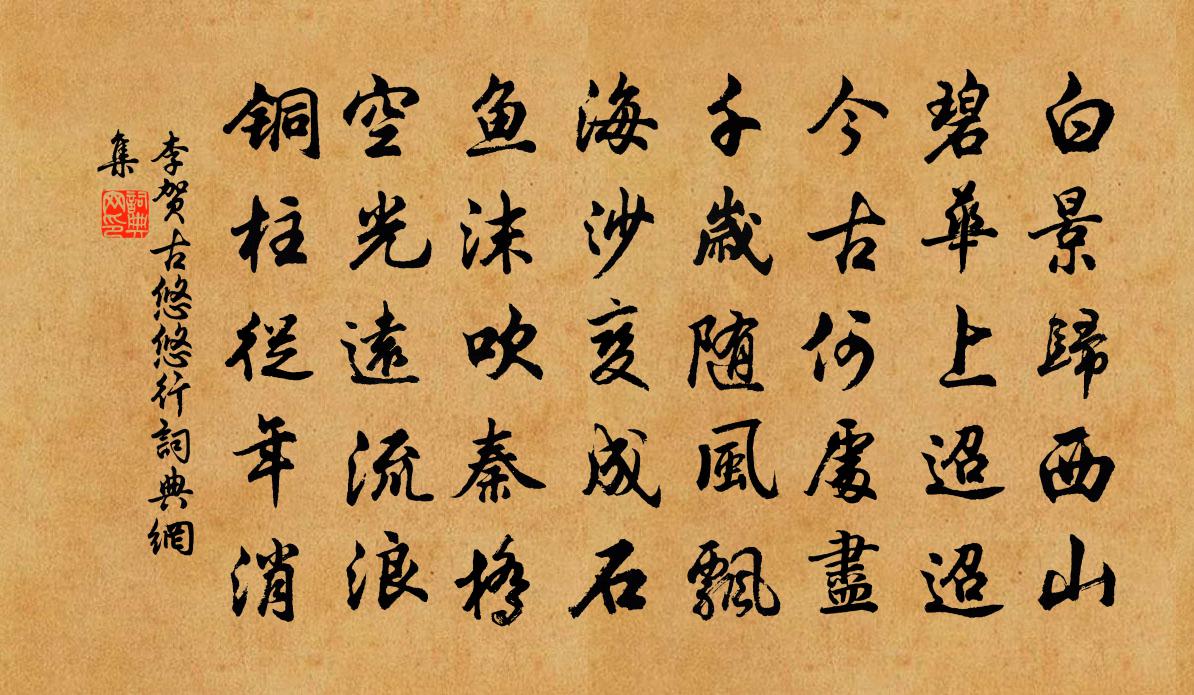 白景歸西山
碧華上迢迢
今古何處盡
千歲随風飄
海沙变成石
鱼沫吹秦橋
空光遠流浪
銅柱從年消
李贺古悠悠行詞典網
集
詞典网印